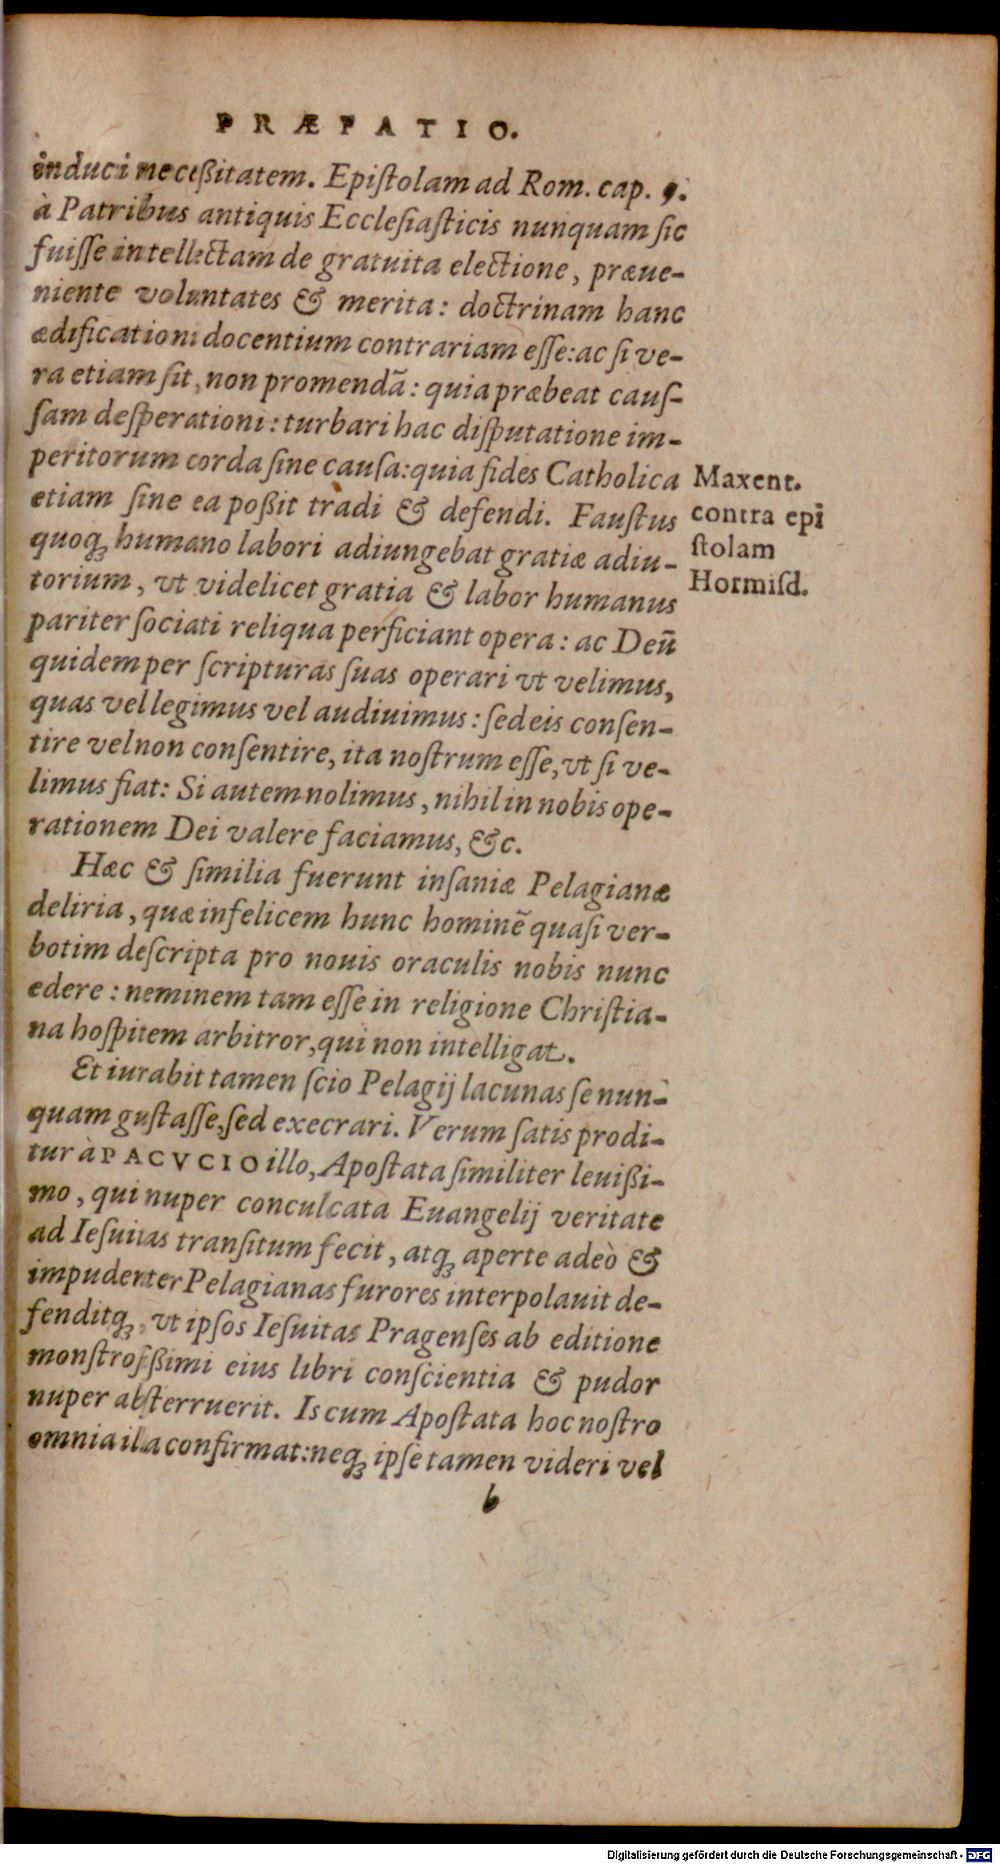 PRÆFATIO.
induci neceßitatem. Epiſtolam ad Rom. cap. 9.
à Patribus antiquis Eccleſiaſticis nunquam ſic
fuiſſe intellectam de gratuita electione, præue-
niente voluntates & merita: doctrinam hanc
ædificationi docentium contrariam eſſe: ac ſi ve-
ra etiam ſit, non promendā: quia præbeat cauſ-
ſam deſperationi: turbari hac diſputatione im-
peritorum corda ſine cauſa: quia fides Catholica
etiam ſine ea poßit tradi & defendi. Fauſtus
quoq́ꝫ humano labori adiungebat gratiæ adiu-
torium, vt videlicet gratia & labor humanus
pariter ſociati reliqua perficiant opera: ac Deū
quidem per ſcripturas ſuas operari vt velimus,
quas vel legimus vel audiuimus: ſed eis conſen-
tire vel non conſentire, ita noſtrum eſſe, vt ſi ve-
limus fiat: Si autem nolimus, nihil in nobis ope-
rationem Dei valere faciamus, &c.
Hæc & ſimilia fuerunt inſaniæ Pelagianæ
deliria, quæ infelicem hunc hominē quaſi ver-
botim deſcripta pro nouis oraculis nobis nunc
edere: neminem tam eſſe in religione Chriſtia-
na hoſpitem arbitror, qui non intelligat.
Et iurabit tamen ſcio Pelagij lacunas ſe nun-
quam guſtaſſe, ſed execrari. Verum ſatis prodi-
tur à PACVCIO illo, Apoſtata ſimiliter leuißi-
mo, qui nuper conculcata Euangelij veritate
ad Ieſuitas tranſitum fecit, atqꝫ aperte adeò &
impudenter Pelagianas furores interpolauit de-
fenditqꝫ, vt ipſos Ieſuitas Pragenſes ab editione
monſtroſißimi eius libri conſcientia & pudor
nuper abſterruerit. Is cum Apoſtata hoc noſtro
omnia illa confirmat: neqꝫ ipſe tamen videri vel
b
Maxent.
contra epi
ſtolam
Hormiſd.
Digitalisierung gefördert durch die Deutsche Forschungsgemeinschaft - DFG